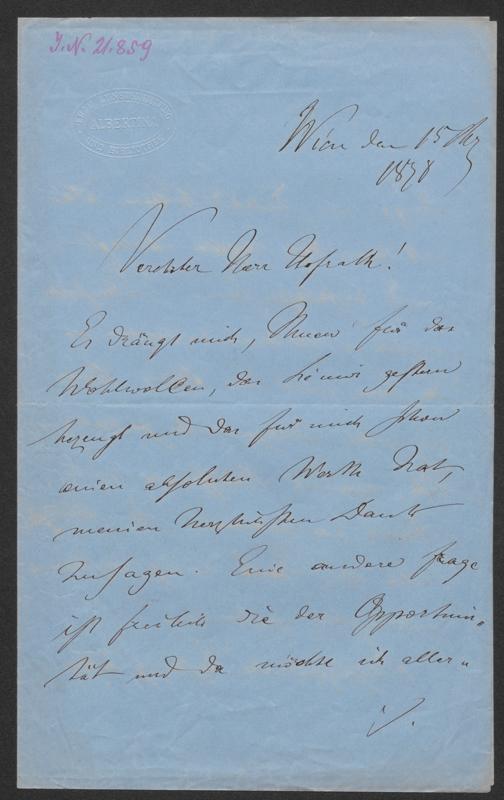 J.N. 21.859
ALBERTINA
Wien den 15 Mz
1878
Verehrter Herr Hofrath!
Es drängt mich, Ihnen für das
Wohlwollen, das Sie mir gestern
bezeugt und das für mich schon
einen absoluten Werth hat,
meinen herzlichsten Dank
zu sagen. Eine andere Frage
ist freilich die der Opportuni„
tät und da möchte ich aller„